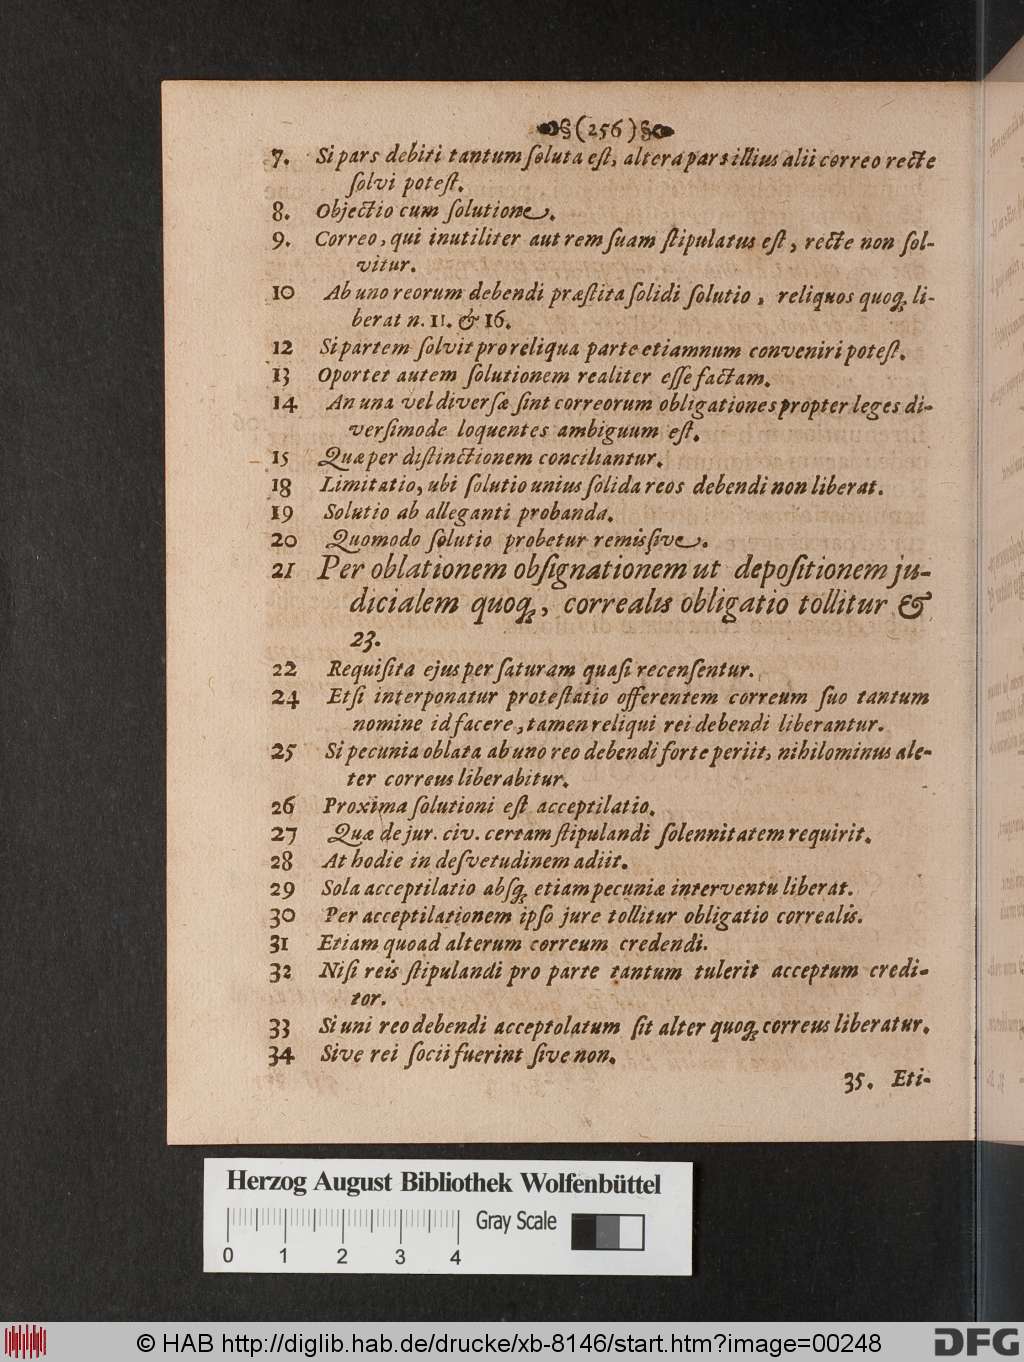 (256)
7. Si pars debiti tantum ſoluta eſt, altera pars illius alii correo recte
ſolvi poteſt.
8. Objectio cum ſolutione.
9. Correo, qui inutiliter aut rem ſuam ſtipulatus eſt, recte non ſol-
vitur.
10 Ab uno reorum debendi præſtita ſolidi ſolutio, reliquos quoq; li-
berat n. 11. & 16.
12 Si partem ſolvit pro reliqua parte etiamnum conveniri poteſt.
13 Oportet autem ſolutionem realiter eſſe factam.
14 An una vel diverſæ ſint correorum obligationes propter leges di-
verſimode loquentes ambiguum eſt.
15 Quæ per diſtinctionem conciliantur.
18 Limitatio, ubi ſolutio unius ſolida reos debendi non liberat.
19 Solutio ab alleganti probanda.
20 Quomodo ſolutio probetur remisſive.
21 Per oblationem obſignationem ut depoſitionem ju-
dicialem quoq;, correalis obligatio tollitur &
23.
22 Requiſita ejus per ſaturam quaſi recenſentur.
24 Etſi interponatur proteſtatio offerentem correum ſuo tantum
nomine id facere, tamen reliqui rei debendi liberantur.
25 Si pecunia oblata ab uno reo debendi forte periit, nihilominus ale-
ter correus liberabitur.
26 Proxima ſolutioni eſt acceptilatio.
27 Quæ de jur. civ. certam ſtipulandi ſolennitatem requirit.
28 At hodie in deſvetudinem adiit.
29 Sola acceptilatio abſq; etiam pecuniæ interventu liberat.
30 Per acceptilationem ipſo jure tollitur obligatio correalis.
31 Etiam quoad alterum correum credendi.
32 Niſi reis ſtipulandi pro parte tantum tulerit acceptum credi-
tor.
33 Si uni reo debendi acceptolatum ſit alter quoq; correus liberatur.
34 Sive rei ſocii fuerint ſive non.
35. Eti-
Herzog August Bibliothek Wolfenbüttel
Gray Scale
0 1 2 3 4
© HAB http://diglib.hab.de/drucke/xb-8146/start.htm?image=00248
DFG